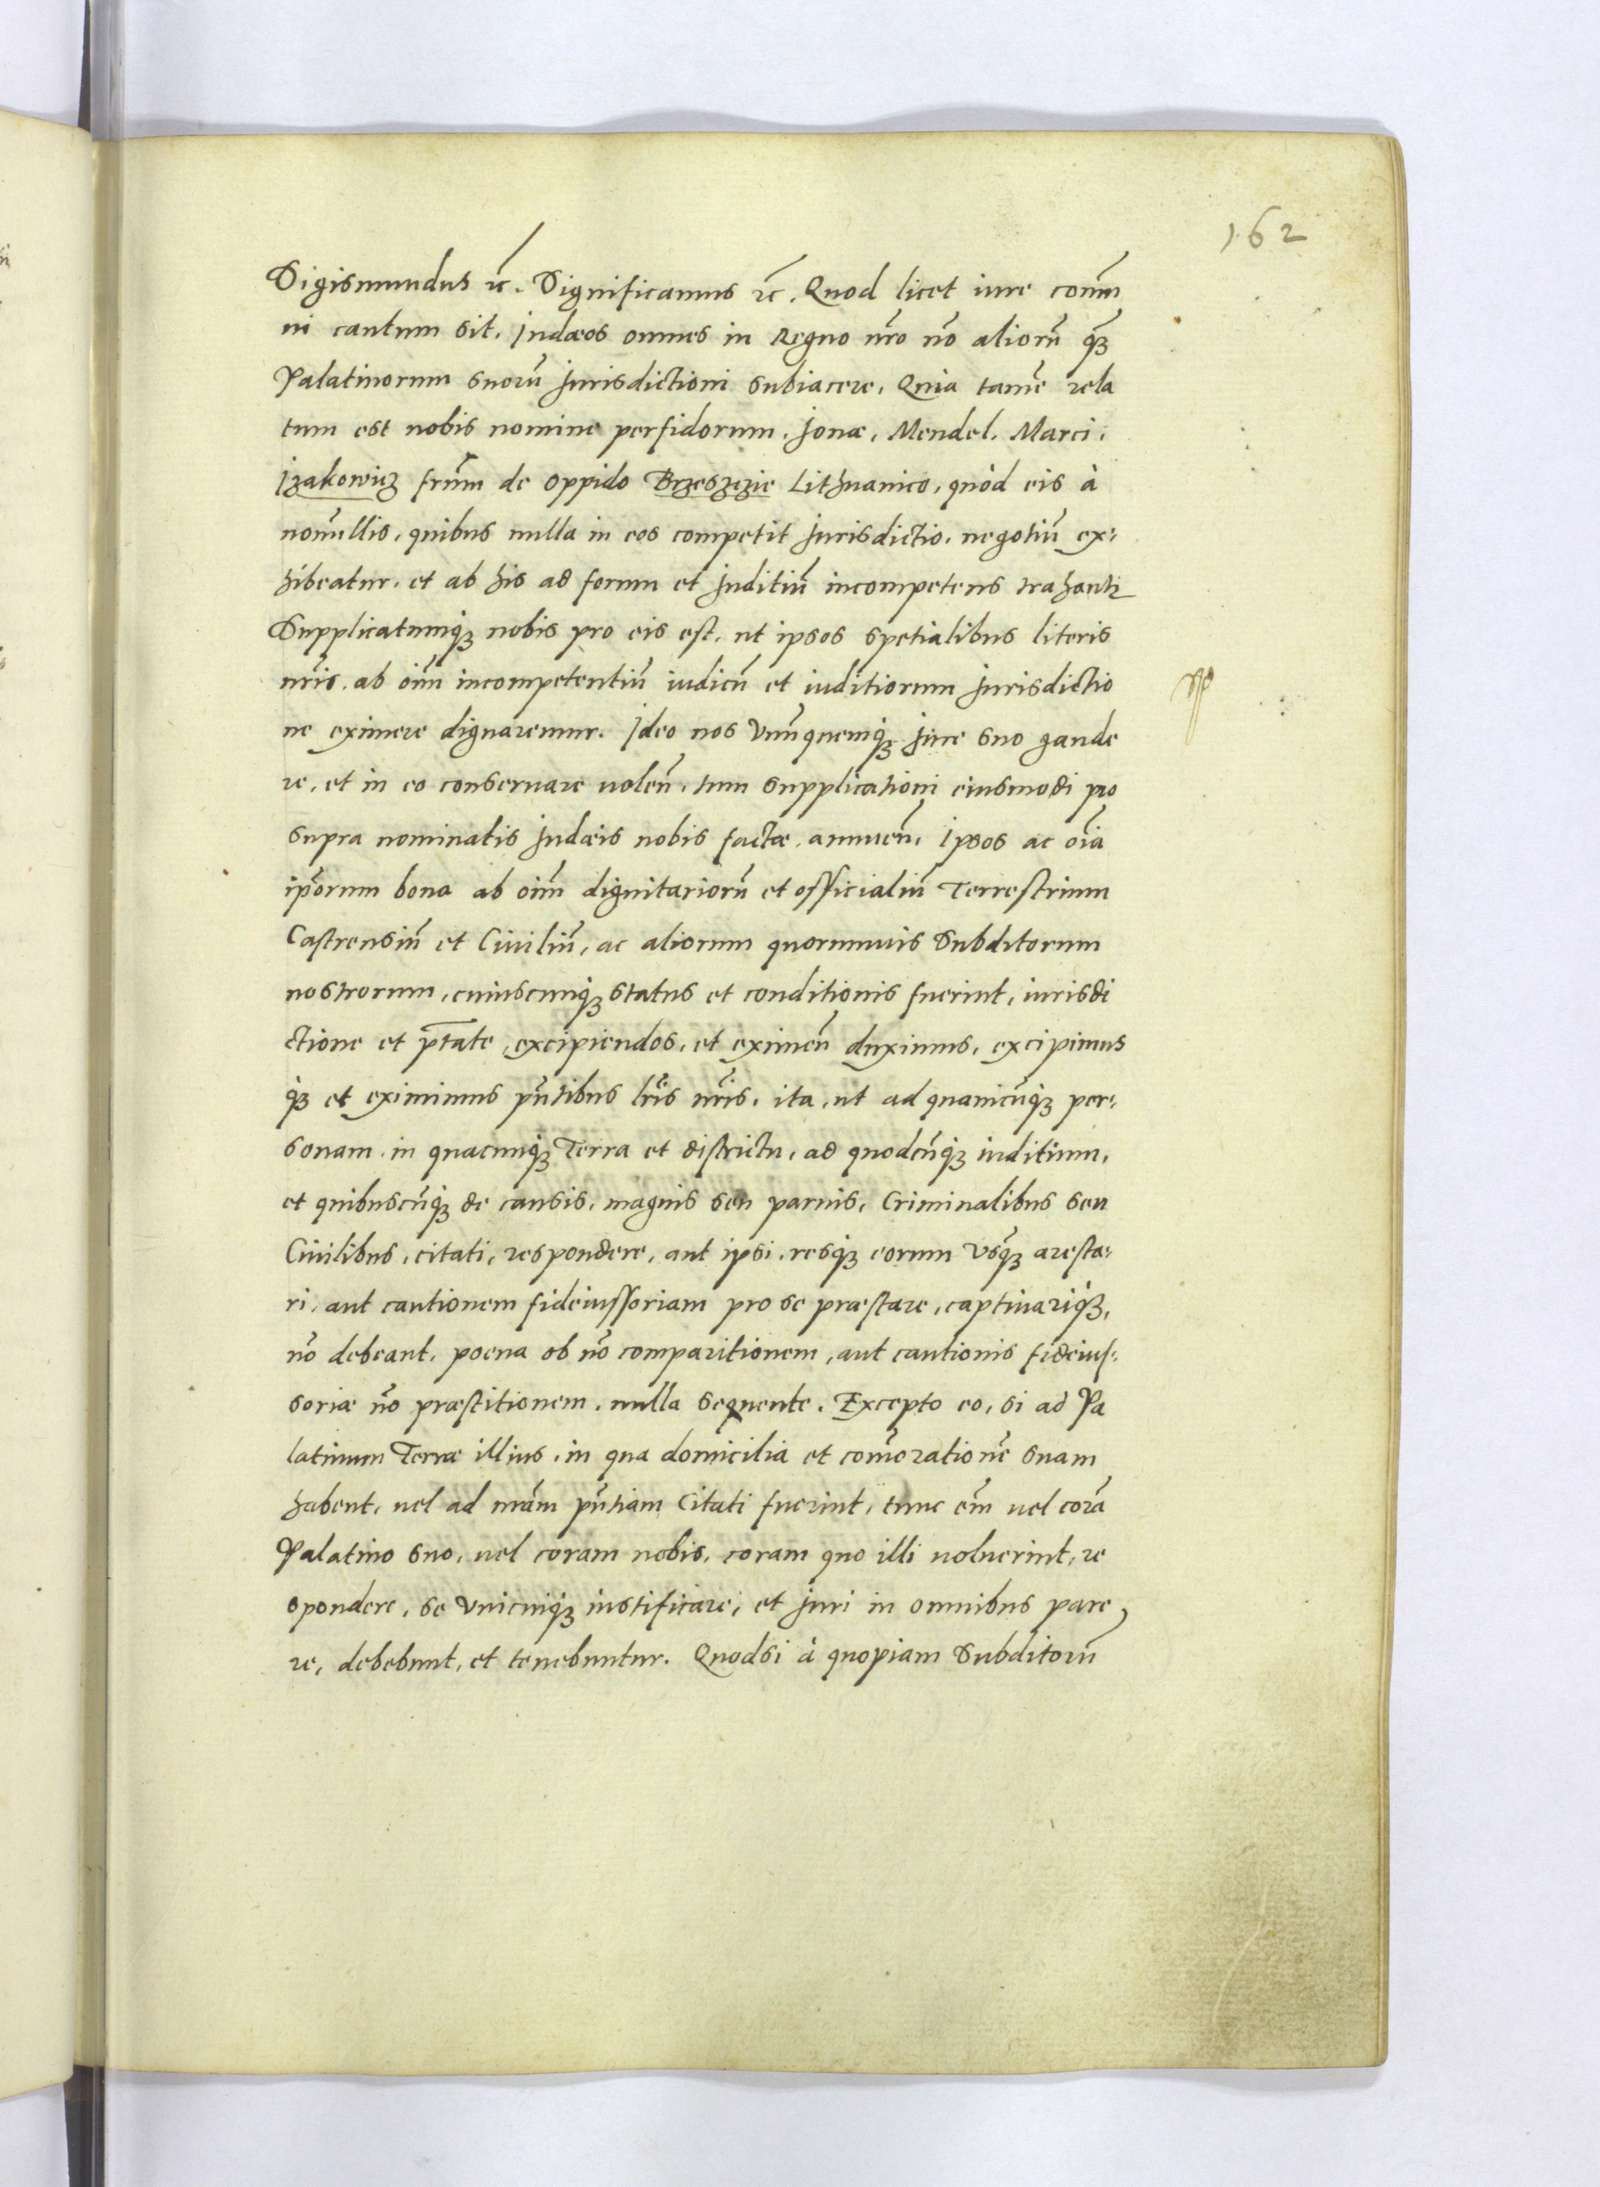 162
Sigismundus etc. Significamus etc. Quod licet iure com̃u
ni cautum sit, Judæos omnes in Regno nr̃o nõ aliorũ q̃3
Palatinorum suorũ Jurisdictioni subiacere, Quia tamẽ rela
tum est nobis nomine perfidorum, Jonæ, Mendel, Marci,
Izakowicz frũm de oppido Brzesczie Lithuanico, quòd eis à
nonũllis, quibus nulla in eos competit Jurisdictio, negotiũ ex-
hibeatur, et ab his ad forum et Juditiũ incompetens trahantr
Supplicatumq3 nobis pro eis est, ut ipsos spetialibus literis
nr̃is, ab oĩm incompetentiũ iudicũ et iuditiorum Jurisdictio
ne eximere dignaremur. Ideo nos Vnũquemq3 Jure suo gaude
re, et in eo conseruare uolen̄, tum supplicationi eiusmodi pro
supra nominatis Judæis nobis factæ, annuen̄, Ipsos ac oĩa
ip̃orum bona ab oĩm dignitariorũ et officialiũ Terrestrium
Castrensiũ et Ciuiliũ, ac aliorum quorumuis Subditorum
nostrorum, cuiuscunq3 status et conditionis fuerint, iurisdi
ctione et ptãte, excipiendos, et eximen̄ duximus, excipimus
q3 et eximimus pñtibus lr̃is nr̃is, ita, ut ad quamcũq3 per-
sonam, in quacunq3 Terra et districtu, ad quodcũq3 iuditium,
et quibuscũq3 de causis, magnis seu paruis, Criminalibus seu
Ciuilibus, citati, respondere, aut ipsi, resq3 eorum Vsq̃3 aresta-
ri, aut cautionem fideiussoriam pro se præstare, captiuariq3,
nõ debeant, poena ob nõ comparitionem, aut cautionis fideius-
soriæ nõ præstitionem, nulla sequente. Excepto eo, si ad Pa
latinum Terræ illius, in qua domicilia et com̃orationẽ suam
habent, uel ad nr̃am pñtiam Citati fuerint, tunc em̃ uel corã
Palatino suo, uel coram nobis, coram quo illi uoluerint, re
spondere, se Vnicuiq3 iustificare, et Juri in omnibus pare
re, debebunt, et tenebuntur. Quodsi à quopiam Subditorũ